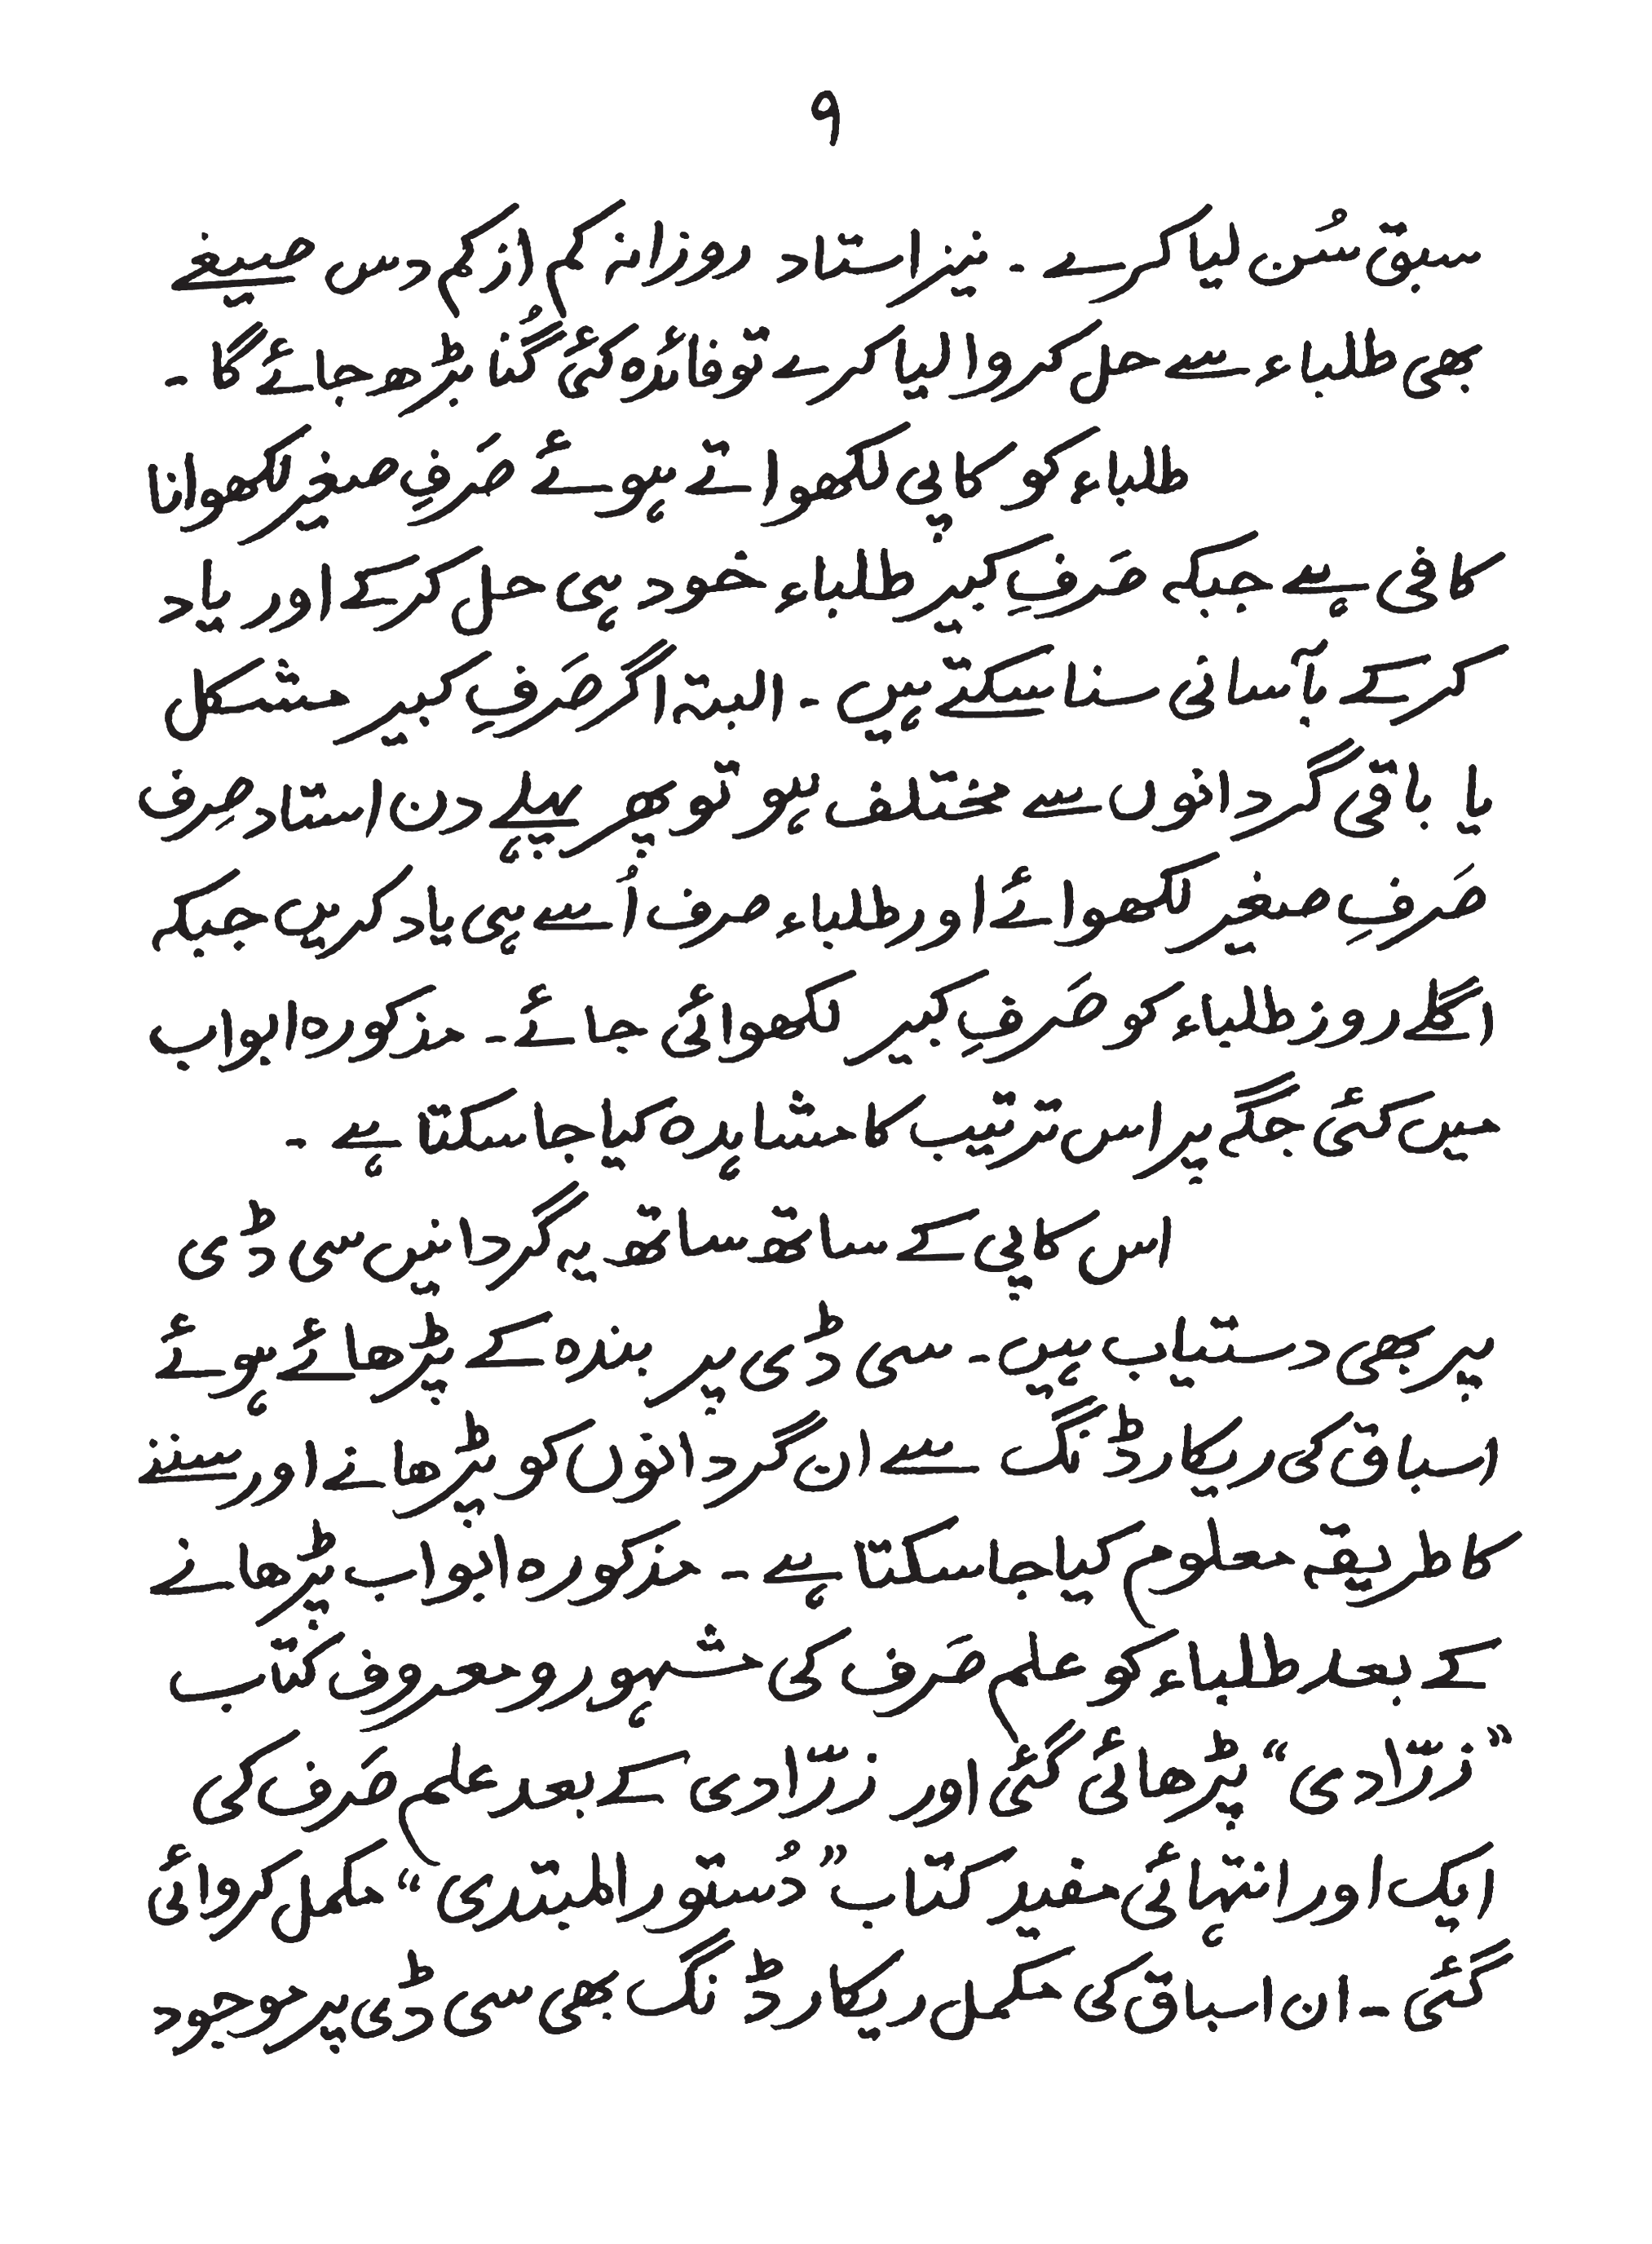 ۹
سبق سُن لیا کرے ۔ نیز استاد روزانہ کم از کم دس صیغے
بھی طلباء سے حل کروا لیا کرے تو فائدہ کئی گُنا بڑھ جائے گا ۔
طلباء کو کاپی لکھواتے ہوئے صَرفِ صغیر لکھوانا
کافی ہے جبکہ صَرفِ کبیر طلباء خود ہی حل کرکے اور یاد
کرکے بآسانی سنا سکتے ہیں ۔ البتہ اگر صَرفِ کبیر مشکل
یا باقی گردانوں سے مختلف ہو تو پھر پہلے دن استاد صِرف
صَرفِ صغیر لکھوائے اور طلباء صرف اُسے ہی یاد کریں جبکہ
اگلے روز طلباء کو صَرفِ کبیر لکھوائی جائے ۔ مذکورہ ابواب
میں کئی جگہ پر اس ترتیب کا مشاہدہ کیا جا سکتا ہے ۔
اس کاپی کے ساتھ ساتھ یہ گردانیں سی ڈی
پر بھی دستیاب ہیں ۔ سی ڈی پر بندہ کے پڑھائے ہوئے
اسباق کی ریکارڈنگ سے ان گردانوں کو پڑھانے اور سننے
کا طریقہ معلوم کیا جا سکتا ہے ۔ مذکورہ ابواب پڑھانے
کے بعد طلباء کو علم صَرف کی مشہور و معروف کتاب
”زرّادی“ پڑھائی گئی اور زرّادی کے بعد علم صَرف کی
ایک اور انتہائی مفید کتاب ”دُستور المبتدی“ مکمل کروائی
گئی ۔ ان اسباق کی مکمل ریکارڈنگ بھی سی ڈی پر موجود